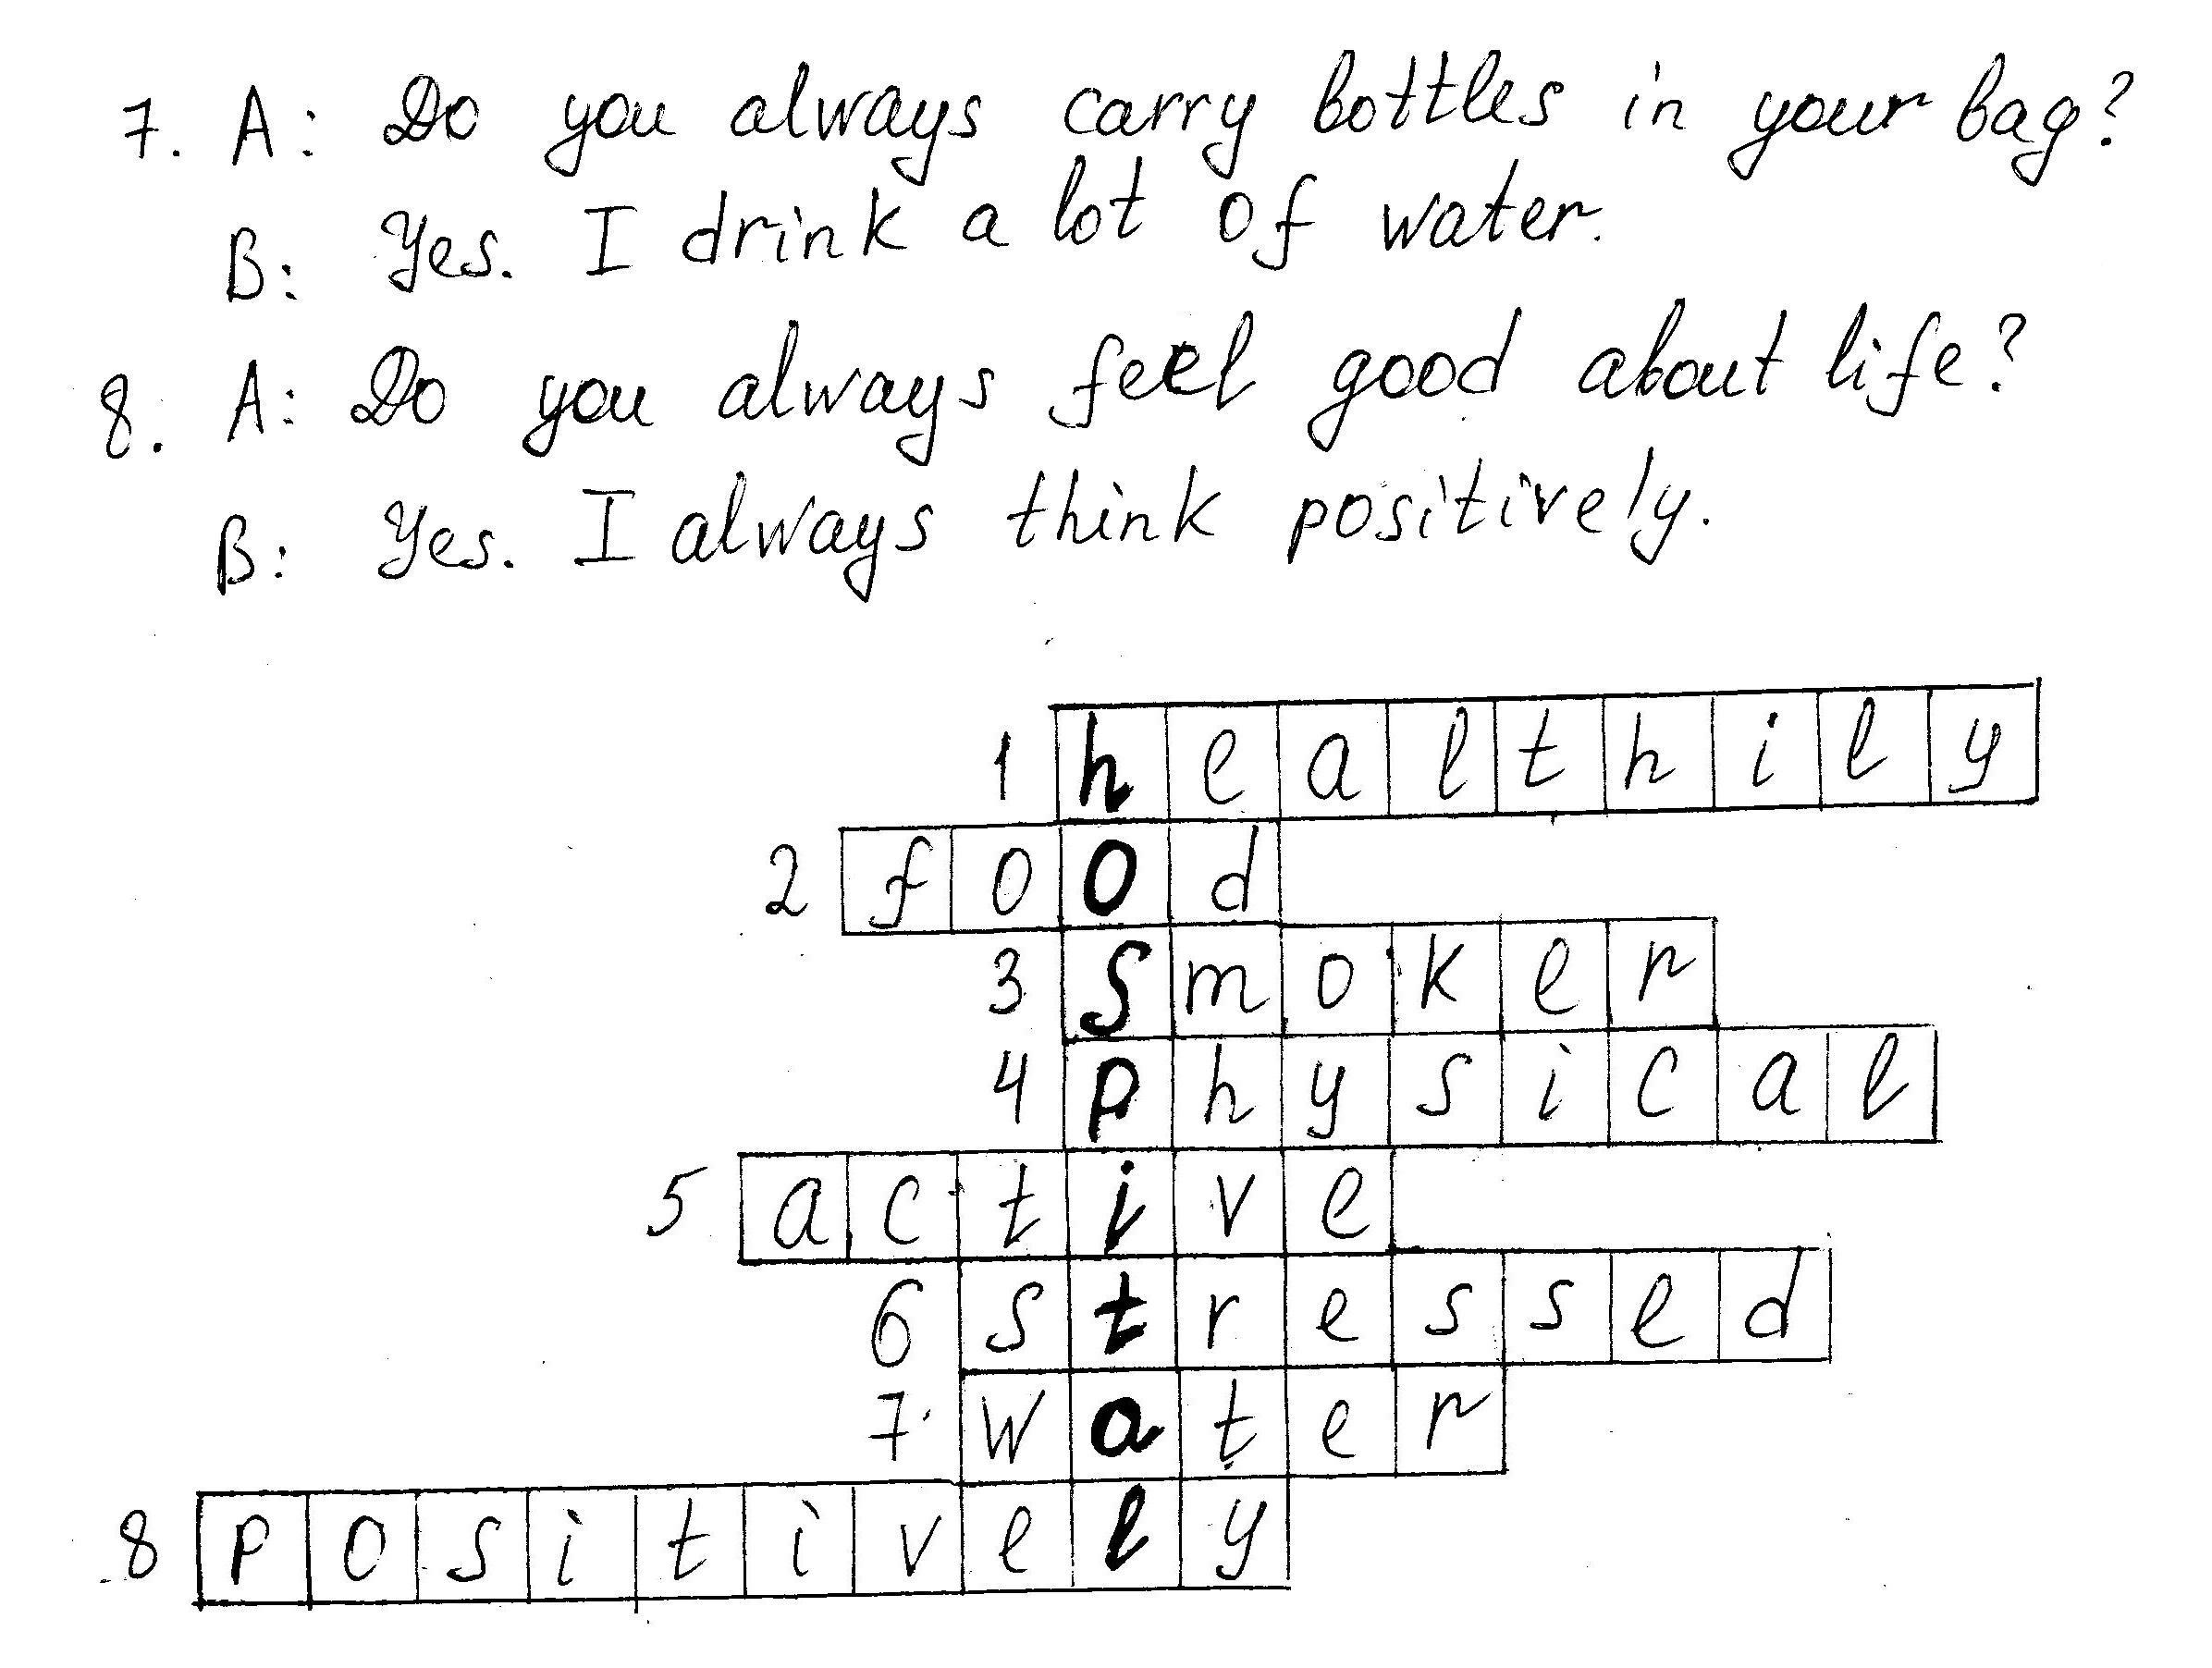 7. A: Do you always carry bottles in your bag?
B: Yes. I drink a lot of water.
8. A: Do you always feel good about life?
B: Yes. I always think positively.
1 healthily
2 food
3 smoker
4 physical
5 active
6 stressed
7 water
8 positively